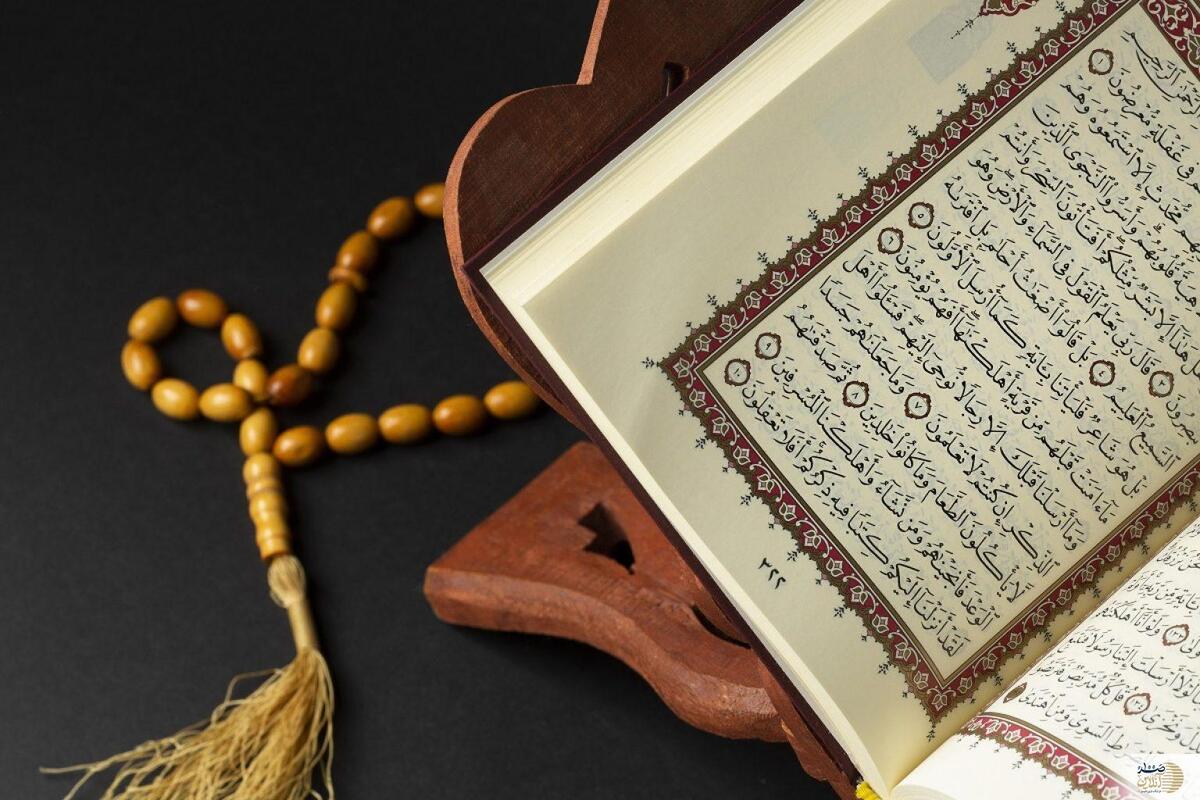 الرَّحْمَٰنِ الرَّحِيمِ
فِي غَفْلَةٍ مُّعْرِضُونَ ١
مُّحْدَثٍ إِلَّا اسْتَمَعُوهُ وَهُمْ
قُلُوبُهُمْ وَأَسَرُّوا النَّجْوَى الَّذِينَ
هَلْ هَٰذَا إِلَّا بَشَرٌ مِّثْلُكُمْ أَفَتَأْتُونَ السِّحْرَ وَأَنتُمْ
تُبْصِرُونَ ٣ قَالَ رَبِّي يَعْلَمُ الْقَوْلَ فِي السَّمَاءِ وَالْأَرْضِ وَهُوَ
السَّمِيعُ الْعَلِيمُ ٤ بَلْ قَالُوا أَضْغَاثُ أَحْلَامٍ بَلِ افْتَرَاهُ
بَلْ هُوَ شَاعِرٌ فَلْيَأْتِنَا بِآيَةٍ كَمَا أُرْسِلَ الْأَوَّلُونَ ٥
مَا آمَنَتْ قَبْلَهُم مِّن قَرْيَةٍ أَهْلَكْنَاهَا أَفَهُمْ يُؤْمِنُونَ ٦
وَمَا أَرْسَلْنَا قَبْلَكَ إِلَّا رِجَالًا نُّوحِي إِلَيْهِمْ فَسْئَلُوا أَهْلَ
الذِّكْرِ إِن كُنتُمْ لَا تَعْلَمُونَ ٧ وَمَا جَعَلْنَاهُمْ جَسَدًا
لَّا يَأْكُلُونَ الطَّعَامَ وَمَا كَانُوا خَالِدِينَ ٨ ثُمَّ صَدَقْنَاهُمُ
الْوَعْدَ فَأَنجَيْنَاهُمْ وَمَن نَّشَاءُ وَأَهْلَكْنَا الْمُسْرِفِينَ ٩
لَقَدْ أَنزَلْنَا إِلَيْكُمْ كِتَابًا فِيهِ ذِكْرُكُمْ أَفَلَا تَعْقِلُونَ ١٠
٣٢٢
وَلَوْ أَنَّا أَهْلَكْنَاهُم
لَوْلَا أَرْسَلْتَ إِلَيْنَا رَسُولًا فَنَتَّبِعَ
وَنَخْزَىٰ ١٣٤ قُلْ كُلٌّ مُّتَرَبِّصٌ فَتَرَبَّصُوا
الصِّرَاطِ السَّوِيِّ وَمَنِ اهْتَدَىٰ
آنلاین